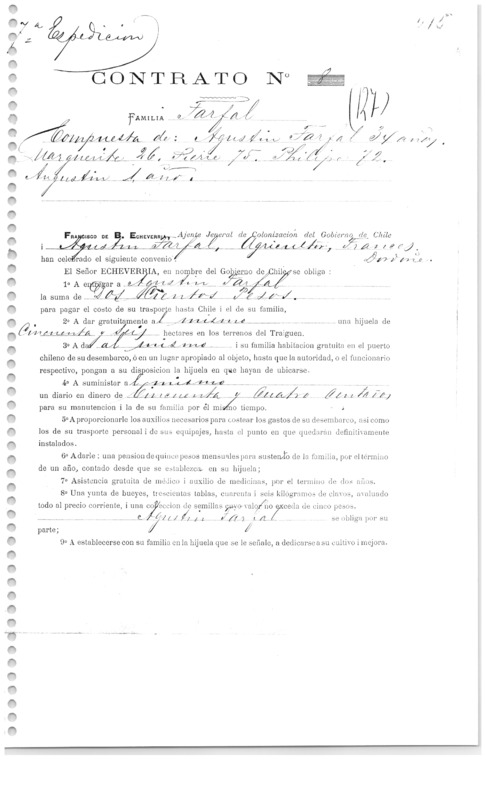 7ª Espedicion
415
CONTRATO Nº 8
FAMILIA Farfal
(127)
Compuesta de: Agustin Farfal 34 años,
Marguerite 26. Pierre 75. Philipe 72.
Augustin 1 año.
FRANCISCO DE B. ECHEVERRIA, Ajente Jeneral de Colonizacion del Gobierno de Chile
i Agustin Farfal, Agricultor, Frances,
han celebrado el siguiente convenio Dordoñe.
El Señor ECHEVERRIA, en nombre del Gobierno de Chile, se obliga :
1º A entregar a Agustin Farfal
la suma de Dos Cientos Pesos.
para pagar el costo de su trasporte hasta Chile i el de su familia,
2º A dar gratuitamente al mismo una hijuela de
Cincuenta y seis hectares en los terrenos del Traiguen.
3º A dar al mismo i su familia habitacion gratuita en el puerto
chileno de su desembarco, ó en un lugar apropiado al objeto, hasta que la autoridad, o el funcionario
respectivo, pongan a su disposicion la hijuela en que hayan de ubicarse.
4º A suministar al mismo
un diario en dinero de Cincuenta y Cuatro Centavos
para su manutencion i la de su familia por él mismo tiempo.
5º A proporcionarle los auxilios necesarios para costear los gastos de su desembarco, asi como
los de su trasporte personal i de sus equipajes, hasta el punto en que quedarán definitivamente
instalados.
6º A darle : una pension de quince pesos mensuales para sustento de la familia, por el término
de un año, contado desde que se establezca en su hijuela ;
7º Asistencia gratuita de médico i auxilio de medicinas, por el termino de dos años.
8º Una yunta de bueyes, trescientas tablas, cuarenta i seis kilógramos de clavos, avaluando
todo al precio corriente, i una coleccion de semillas cuyo valor no exceda de cinco pesos.
Agustin Farfal se obliga por su
parte ;
9º A establecerse con su familia en la hijuela que se le señale, a dedicarse a su cultivo i mejora.